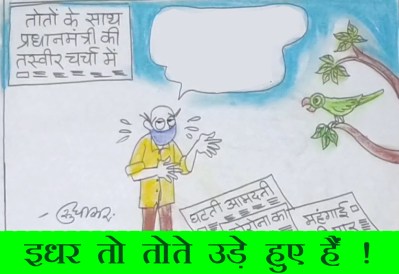 तोतों के साथ
प्रधानमंत्री की
तस्वीर चर्चा में
घटती आमदनी
का
महंगाई
इधर तो तोते उड़े हुए हैं !